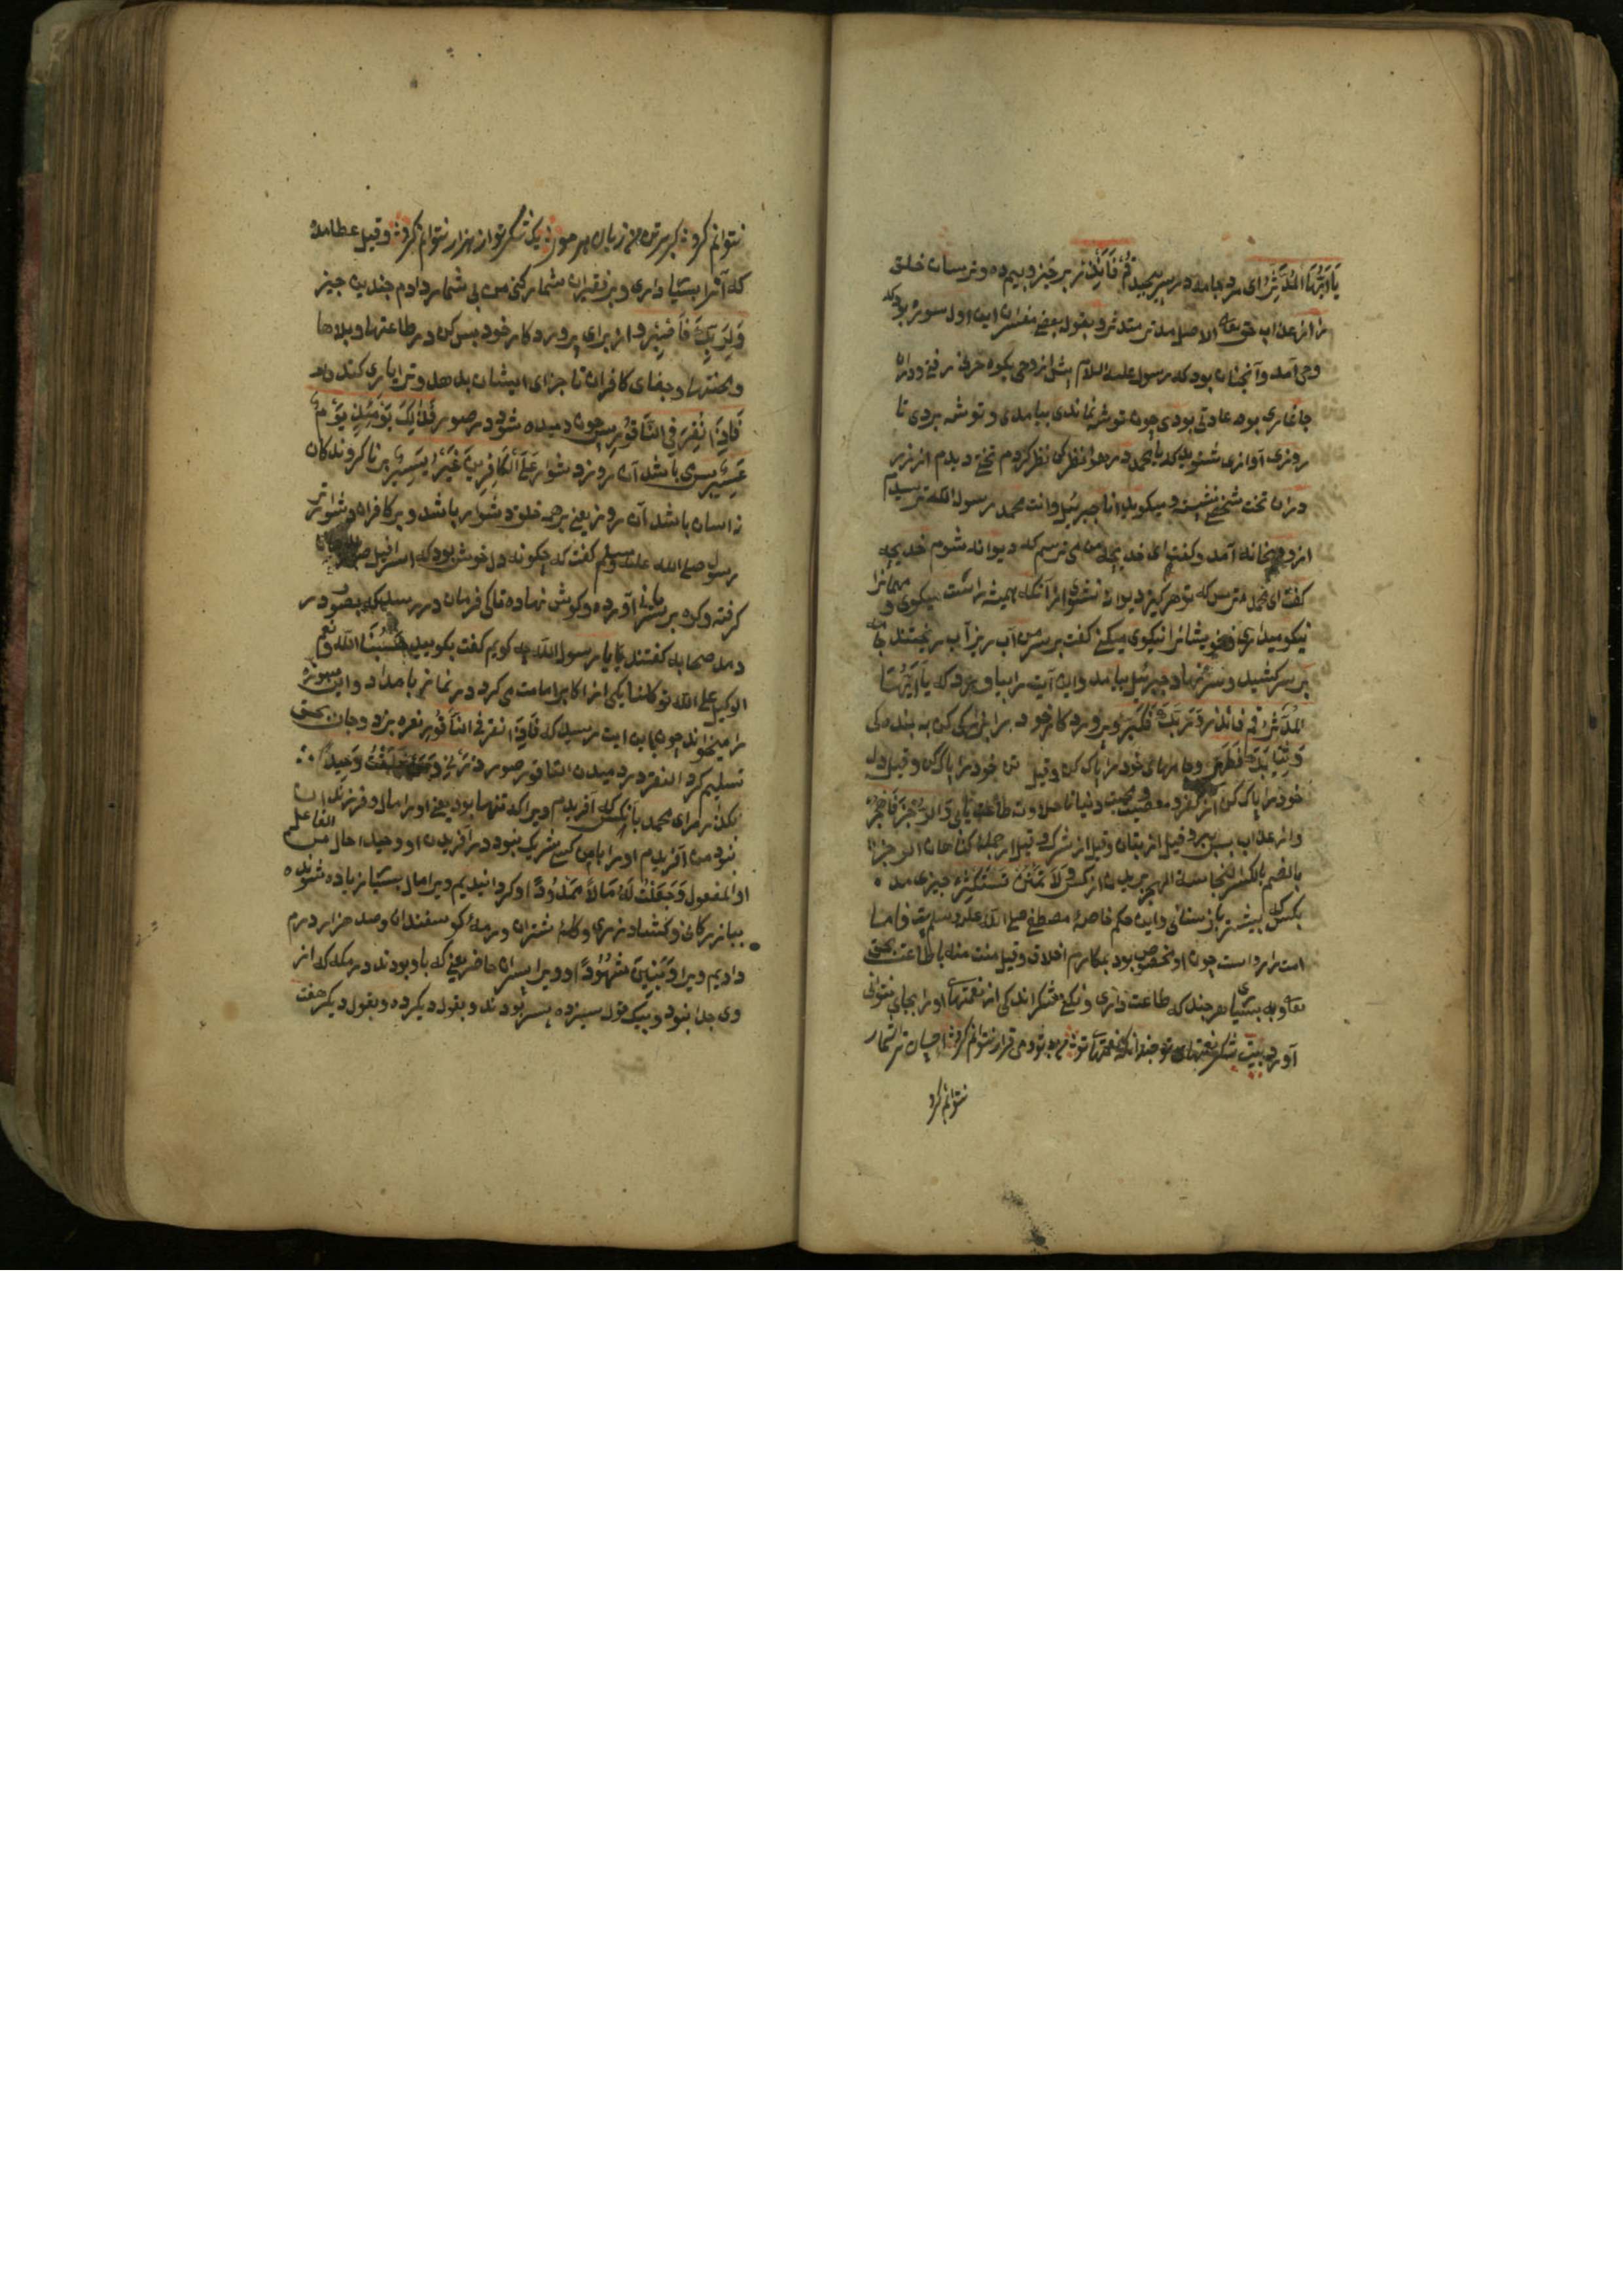 يَا اَيُّهَا الْمُدَّثِّرُ ای مرد جامه در سر پیچیده قُمْ فَاَنْذِرْ برخیز و بیم ده و ترسان خلق
را از عذاب حق تعالی الاصل مدثر متدثر و بقول بعضی مفسران این اول سوره بود که
وحی آمد و آنچنان بود که رسول علیه السلام پیش از وحی بکوه حری رفتی و دران
جا غاری بود عادتی بودی چون توشه نماندی بیامدی و توشه بردی تا
روزی آوازی شنوید که یا محمد در هوا نظر کن نظر کردم تختی دیدم از زر
دران تخت شخصی نشسته و میکوید انا جبرئیل وانت محمد رسول الله ترسیدم
از وی بخانه آمد و کفت ای خدیجه من می ترسم که دیوانه شوم خدیجه
کفت ای محمد مترس که تو هرکیز دیوانه نشوی از آنکه همیشه راست میکوی و مهمانرا
نیکو میداری و خویشانرا نیکوی میکنی کفت بر سر من آب ریز آب ریختند جامه
بر سر کشید و سر نهاد جبرئیل بیامد و این آیت را بیاورد که يَا اَيُّهَا
الْمُدَّثِّرُ قم فانذر وَرَبَّكَ فَكَبِّرْ و پروردکار خود را بزرکی کن به بندکی
وَثِيَابَكَ فَطَهِّرْ و جامهای خود را پاک کن و قیل تن خود را پاک کن و قیل دل
خود را پاک کن از کفر و معصیت و محبت دنیا تا حلاوت طاعت یابی وَالرُّجْزَ فَاهْجُرْ
و از عذاب بپرهیز و قیل از بتان و قیل از شرک و قیل از جمله کناهان الرجز
بالضم بالکسر النجاسة الهجر بریدن از کس وَلَا تَمْنُنْ تَسْتَكْثِرُ چیزی مده
بکس که بیشتر باز ستانی و این حکم خاصه مصطفی صلی الله علیه وسلم و اما
امت را رواست چون او مخصوص بود بمکارم اخلاق و قیل منت منه بطاعت بحق
تعالی به بسیاری هر چند که طاعت داری و نیکی شکر اندکی از نعمتهای او را بجای نتوانی
آورد بیت شکر نعمتهای تو چندانکه نعمتهای تو من به تو دمی قرار نتوانم کرد احسان ترا شمار
نتوانم کرد
نتوانم کرد کر بر تن من زبان هر موی یک شکر تو از هزار نتوانم کرد وقیل عطا مده
که آنرا بسیار داری و بر فقیران شمار کنی من بی شمار دادم چندین چیز
وَلِرَبِّكَ فَاصْبِرْ و از برای پروردکار خود بس کن در طاعتها و بلاها
و محنتها و جفای کافران تا جزای ایشان بدهد و ترا یاری کند
فَاِذَا نُقِرَ فِي النَّاقُورِ پس چون دمیده شود در صور فَذٰلِكَ يَوْمَئِذٍ يَوْمٌ
عَسِيرٌ پس باشد آن روز دشوار عَلَى الْكَافِرِينَ غَيْرُ يَسِيرٍ بر ناکروندکان
نه اسان باشد آن روز یعنی بر همه خلق دشوار باشد و بر کافران دشوارتر
رسول صلی الله علیه وسلم کفت که چکونه دل خوش بود که اسرافیل صور
کرفته و کوه بر پیشانی آورده و کوش نهاده تا کی فرمان در رسد که بصور در
دمد صحابه کفتند یا رسول الله چه کویم کفت بکویید حَسْبُنَا الله ونعم
الوکیل علی الله توکلنا یکی از اکابر امامت می کرد در نماز بامداد و این سوره
را میخواند چون باین ایت رسید که فَاِذَا نقر فی الناقور نعره بزد و جان بحق
تسلیم کرد النقر در دمیدن الناقور صور ذَرْنِي وَمَنْ خَلَقْتُ وَحِيدًا
بکذار مرا ای محمد با آنکس که آفریدم ویرا که تنها بود یعنی او را مال و فرزندان
نبود من آفریدم او را با من کسی شریک نبود در آفریدن او وحید احال من الفاعل
او المفعول وَجَعَلْتُ لَهُ مَالًا مَمْدُودًا و کردانیدیم ویرا مال بسیار زیاده شونده
ببازرکانی و کشاورزی و کلهٔ شتران و رمهٔ کوسفندان و صد هزار درم
دادیم ویرا وَبَنِينَ شُهُودًا و ویرا پسران حاضر یعنی که با او بودند در مکه که از
وی جدا نبود و بیک قول سیزده پسر بودند و بقول دیکر ده و بقول دیکر هفت